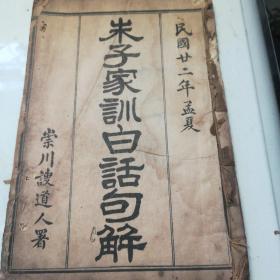 民國廿二年孟夏
朱子家訓白話句解
崇川謏道人署